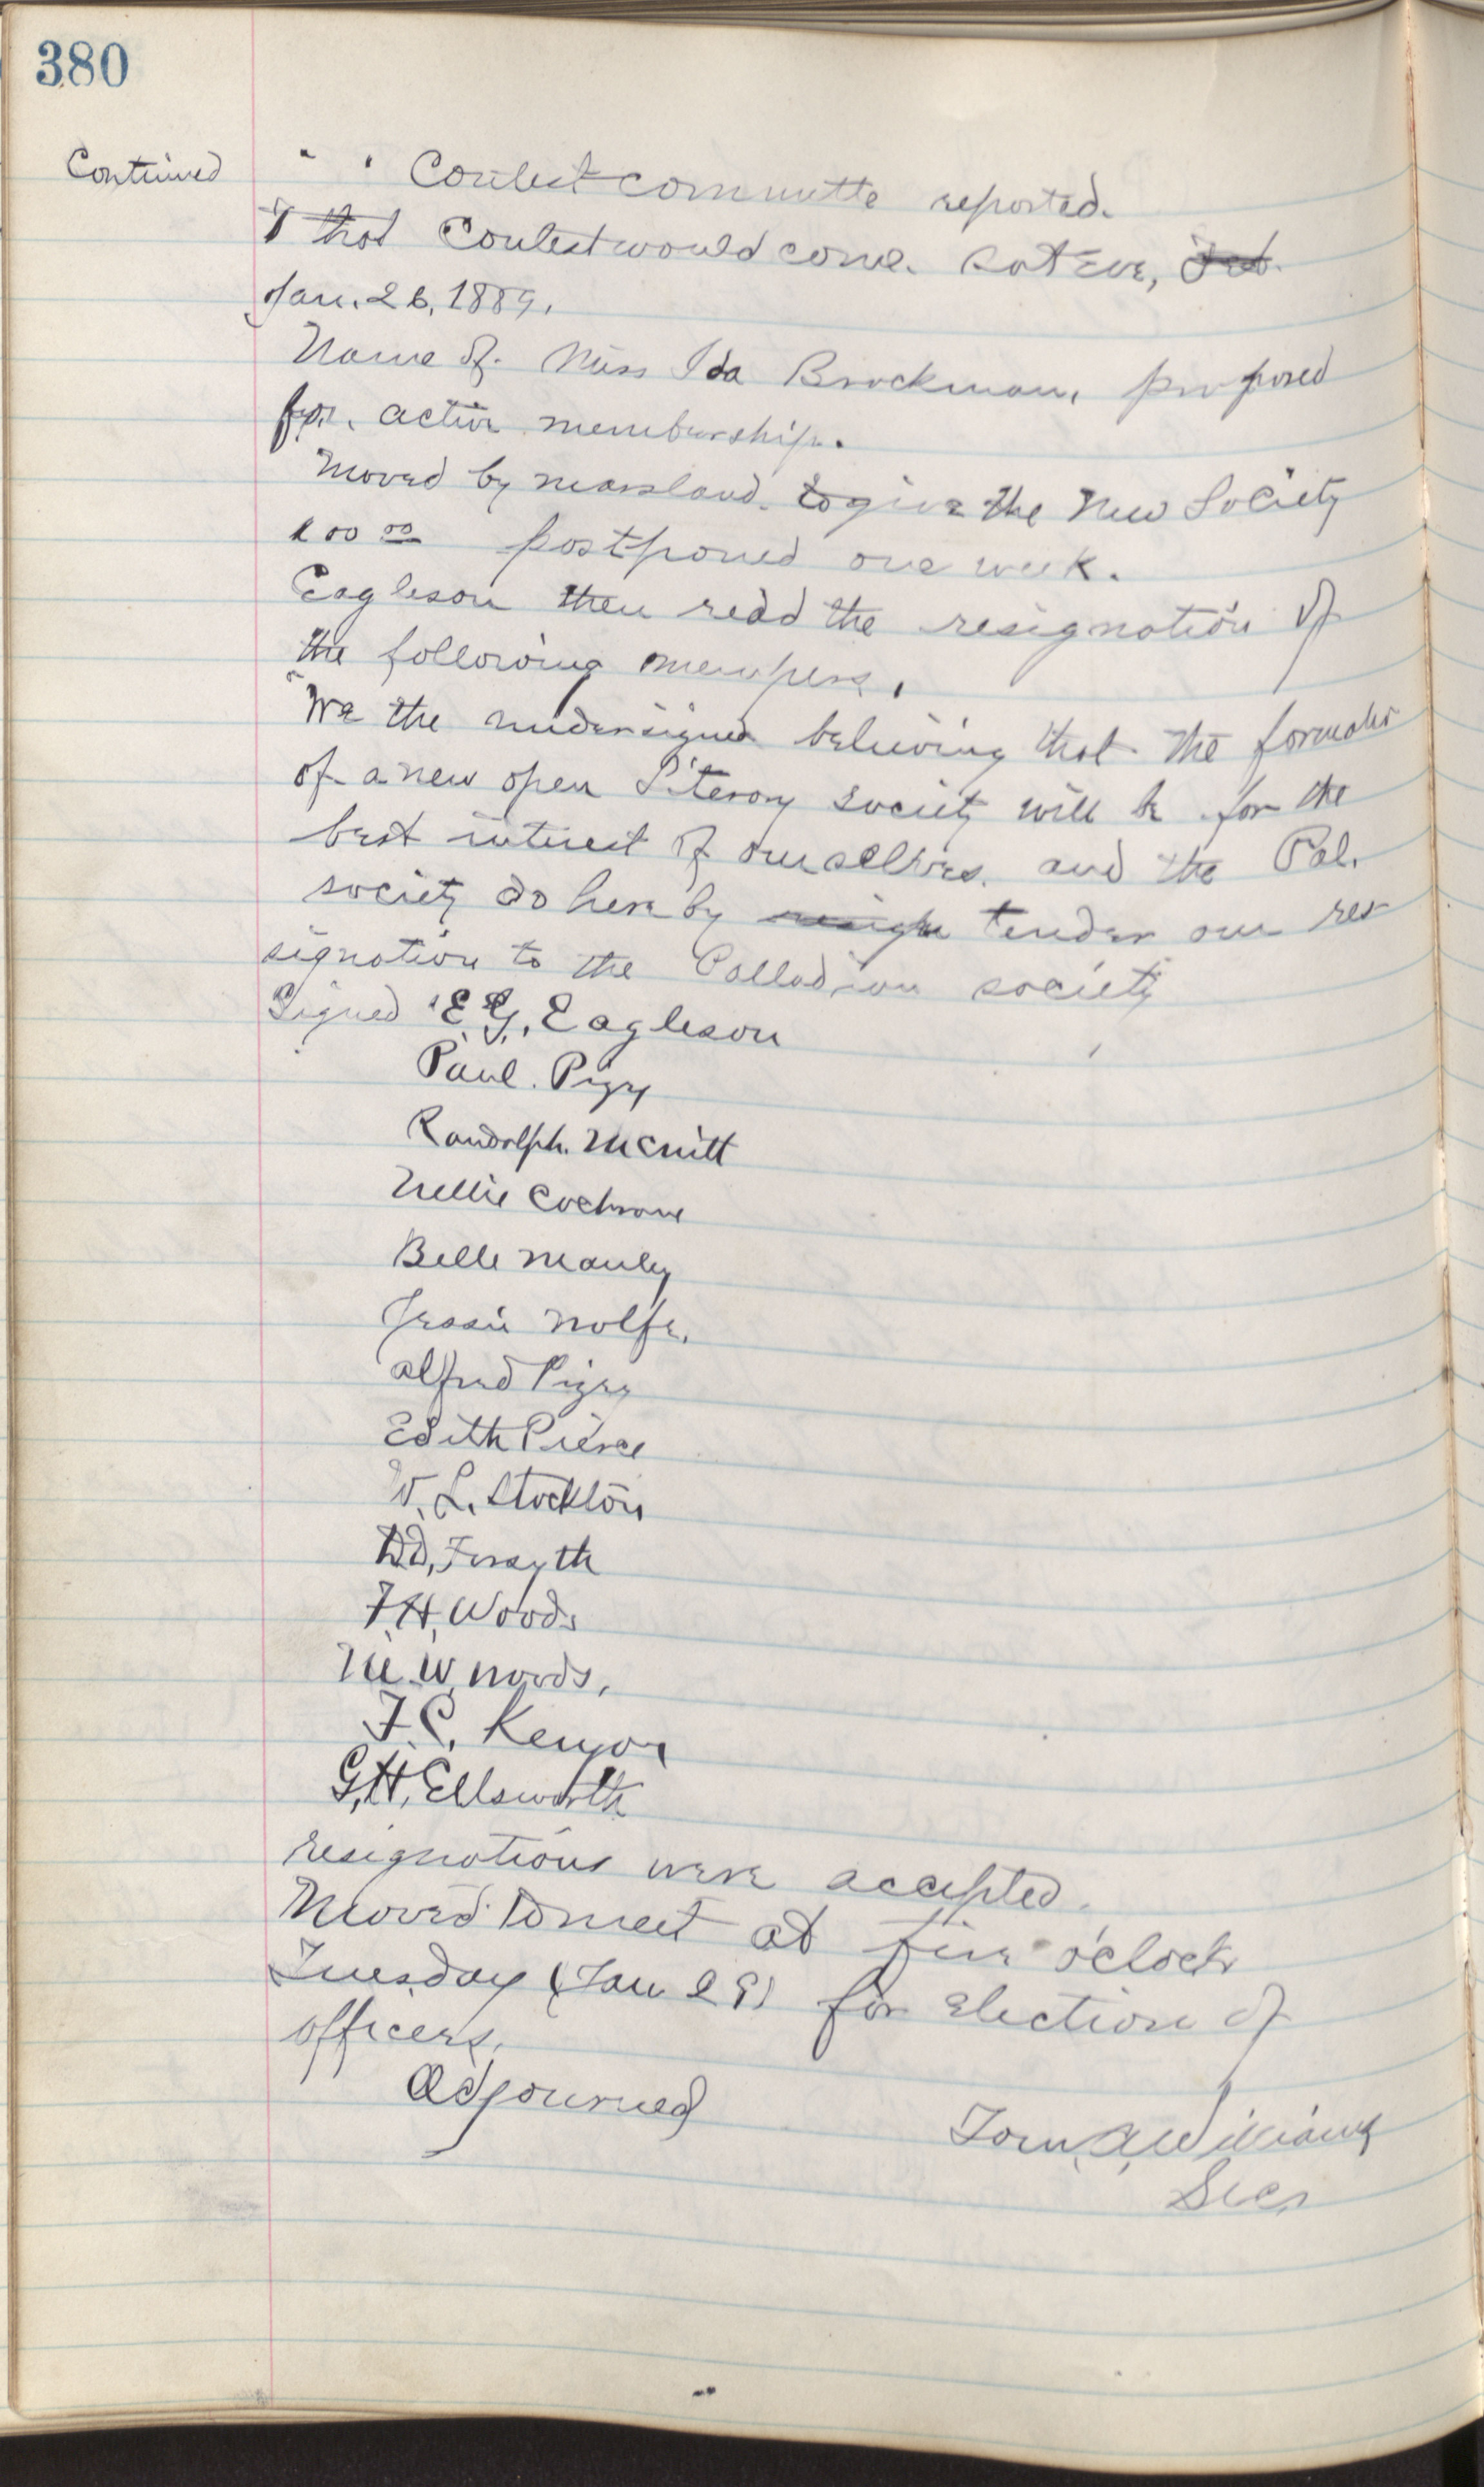 380
Continued " " Contest committe reported.
T that Contest would come. Sat Eve, Feb.
Jan. 26, 1889.
Name of. Miss Ida Brockman, proposed
for, active membership.
Moved by Marsland. to give the New Society
100 00 postponed one week.
Eagleson then read the resignation of
the following members,
"We the undersigned believing that the formation
of a new open Literary society will be for the
best interest of ourselves. and the Pal.
society do here by resign tender our res
signation to the Palladian society
Signed "E. G. Eagleson
Paul. Pizy
Randolph. McNitt
Nellie Cochrane
Belle Manley
Jessie Wolfe.
Alfred Pizey
Edith Pierce
W. L. Stockton
DD, Forsyth
F. H. Woods
M. W. Woods,
F. C. Kenyon
G. H. Ellsworth
resignations were accepted.
Moved to meet at five o'clock
Tuesday (Jan 29) for election of
officers,
Adjourned
Tom. A. Williams
Sec,